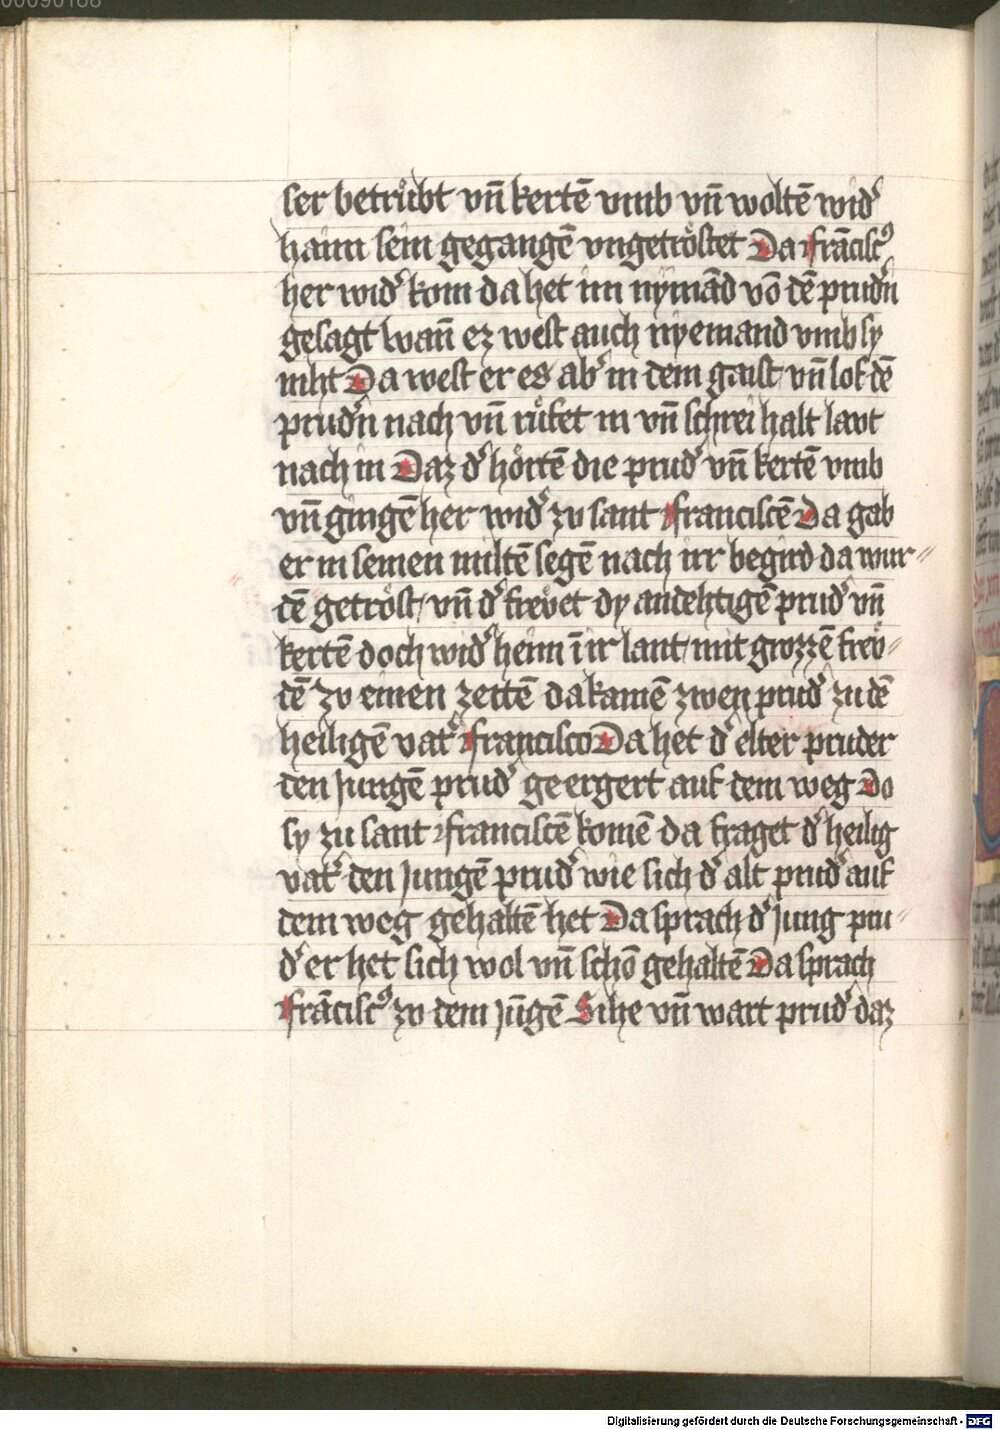 ser betrůbt vn̄ kertē vmb vn̄ woltē wid᾽
haim sein gegangē vngetröstet Da frāciscꝰ
her wid᾽ kom da het im nymād vō dē prud᾽n
gesagt wan̄ ez west auch nyemand vmb sy
niht Da west er es ab᾽ in dem gaist vn̄ lof dē
prud᾽n nach vn̄ růfet in vn̄ schrei halt lavt
nach in Daz d᾽ hörtē die prud᾽ vn̄ kertē vmb
vn̄ gingē her wid᾽ zv sant franciscē Da gab
er in seinen miltē segē nach irr begird da wur⸗
dē getröst / vn̄ d᾽ frevet dy andehtigē prud᾽ vn̄
kertē doch wid᾽ heim ī ir lant mit grozzē frev⸗
dē zv einen zeitē da kamē zwen prud᾽ zu dē
heiligē vat᾽ francisco Da het d᾽ elter pruder
den Jungē prud᾽ geergert auf dem weg Do
sy zu sant franciscē komē da fraget d᾽ heilig
vat᾽ den Jungē prud᾽ wie sich d᾽ alt prud᾽ auf
dem weg gehaltē het Da sprach d᾽ Jung pru⸗
d᾽ er het sich wol vn̄ schō gehaltē Da sprach
frāciscꝰ zv dem Jūgē Sihe vn̄ wart prud᾽ daz
Digitalisierung gefördert durch die Deutsche Forschungsgemeinschaft - DFG